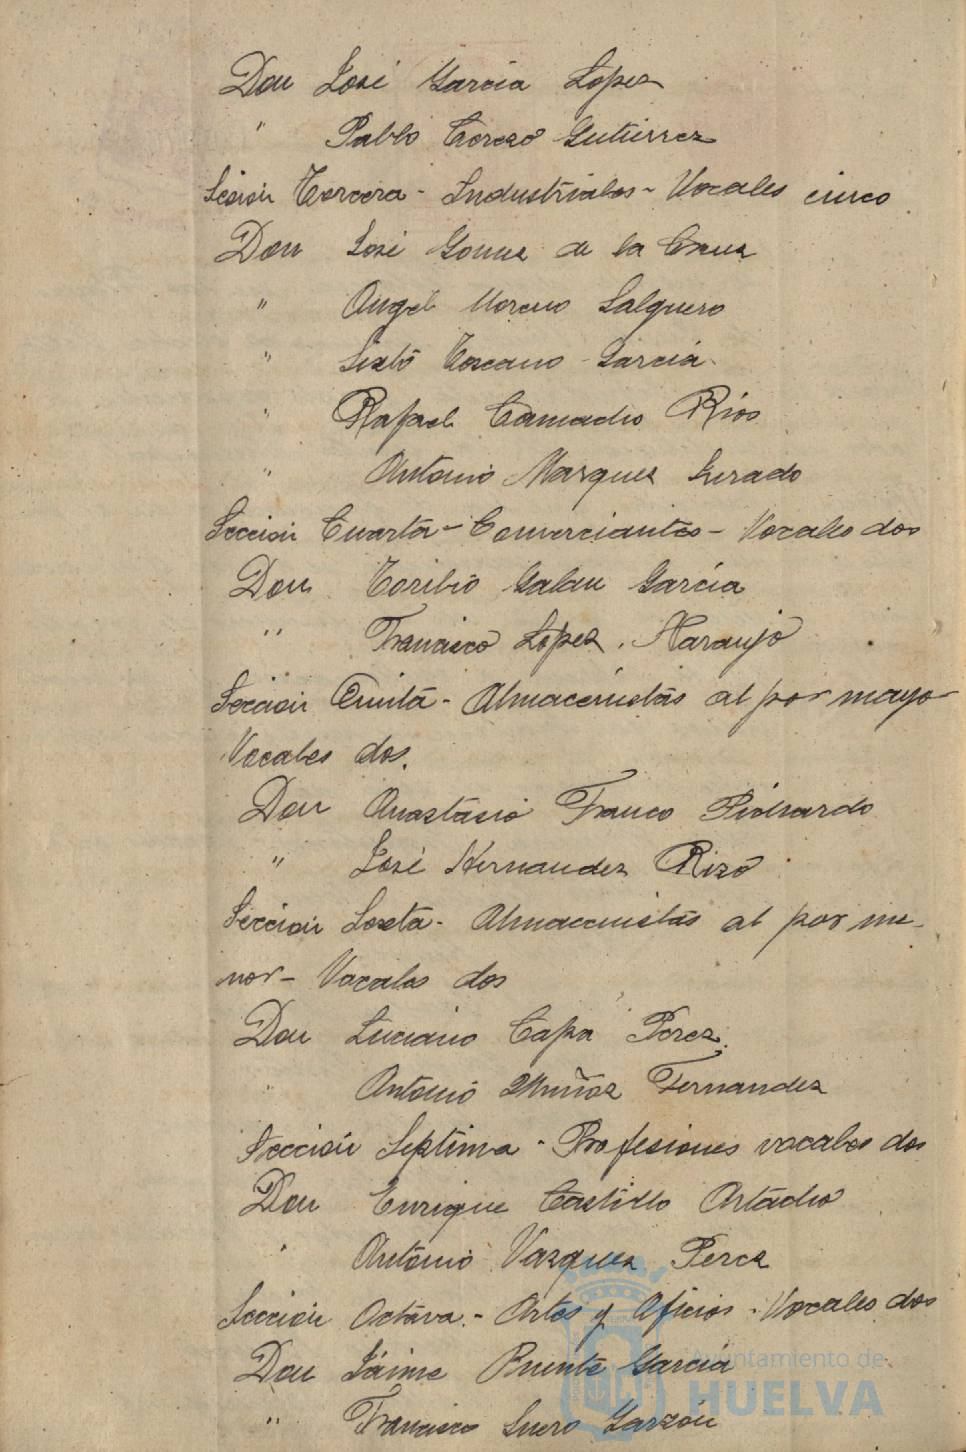 Don José Garcia Lopez
" Pablo Cerezo Gutierrez
Sección Tercera - Industriales - Vocales cinco
Don José Gomez de la Cruz
" Angel Moreno Salguero
" Sixto Toscano Garcia
" Rafael Camacho Rios
" Antonio Marquez Jurado
Sección Cuarta - Comerciantes - Vocales dos
Don Toribio Galan García
" Francisco Lopez Naranjo
Sección Quinta - Almacenistas al por mayor
Vocales dos.
Don Anastasio Franco Pichardo
" José Hernandez Rizo
Sección Sexta - Almacenistas al por me-
nor - Vocales dos
Don Luciano Capa Perez
" Antonio Muñoz Fernandez
Sección Septima - Profesiones vocales dos
Don Enrique Castillo
" Antonio Vazquez Perez
Sección Octava - Artes y Oficios - Vocales dos
Don Jáime Puente García
" Francisco Suero Garzón
Ayuntamiento de
HUELVA